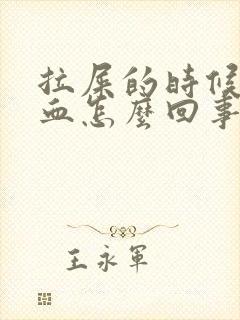 拉屎的時候
血怎麼回事
王永軍